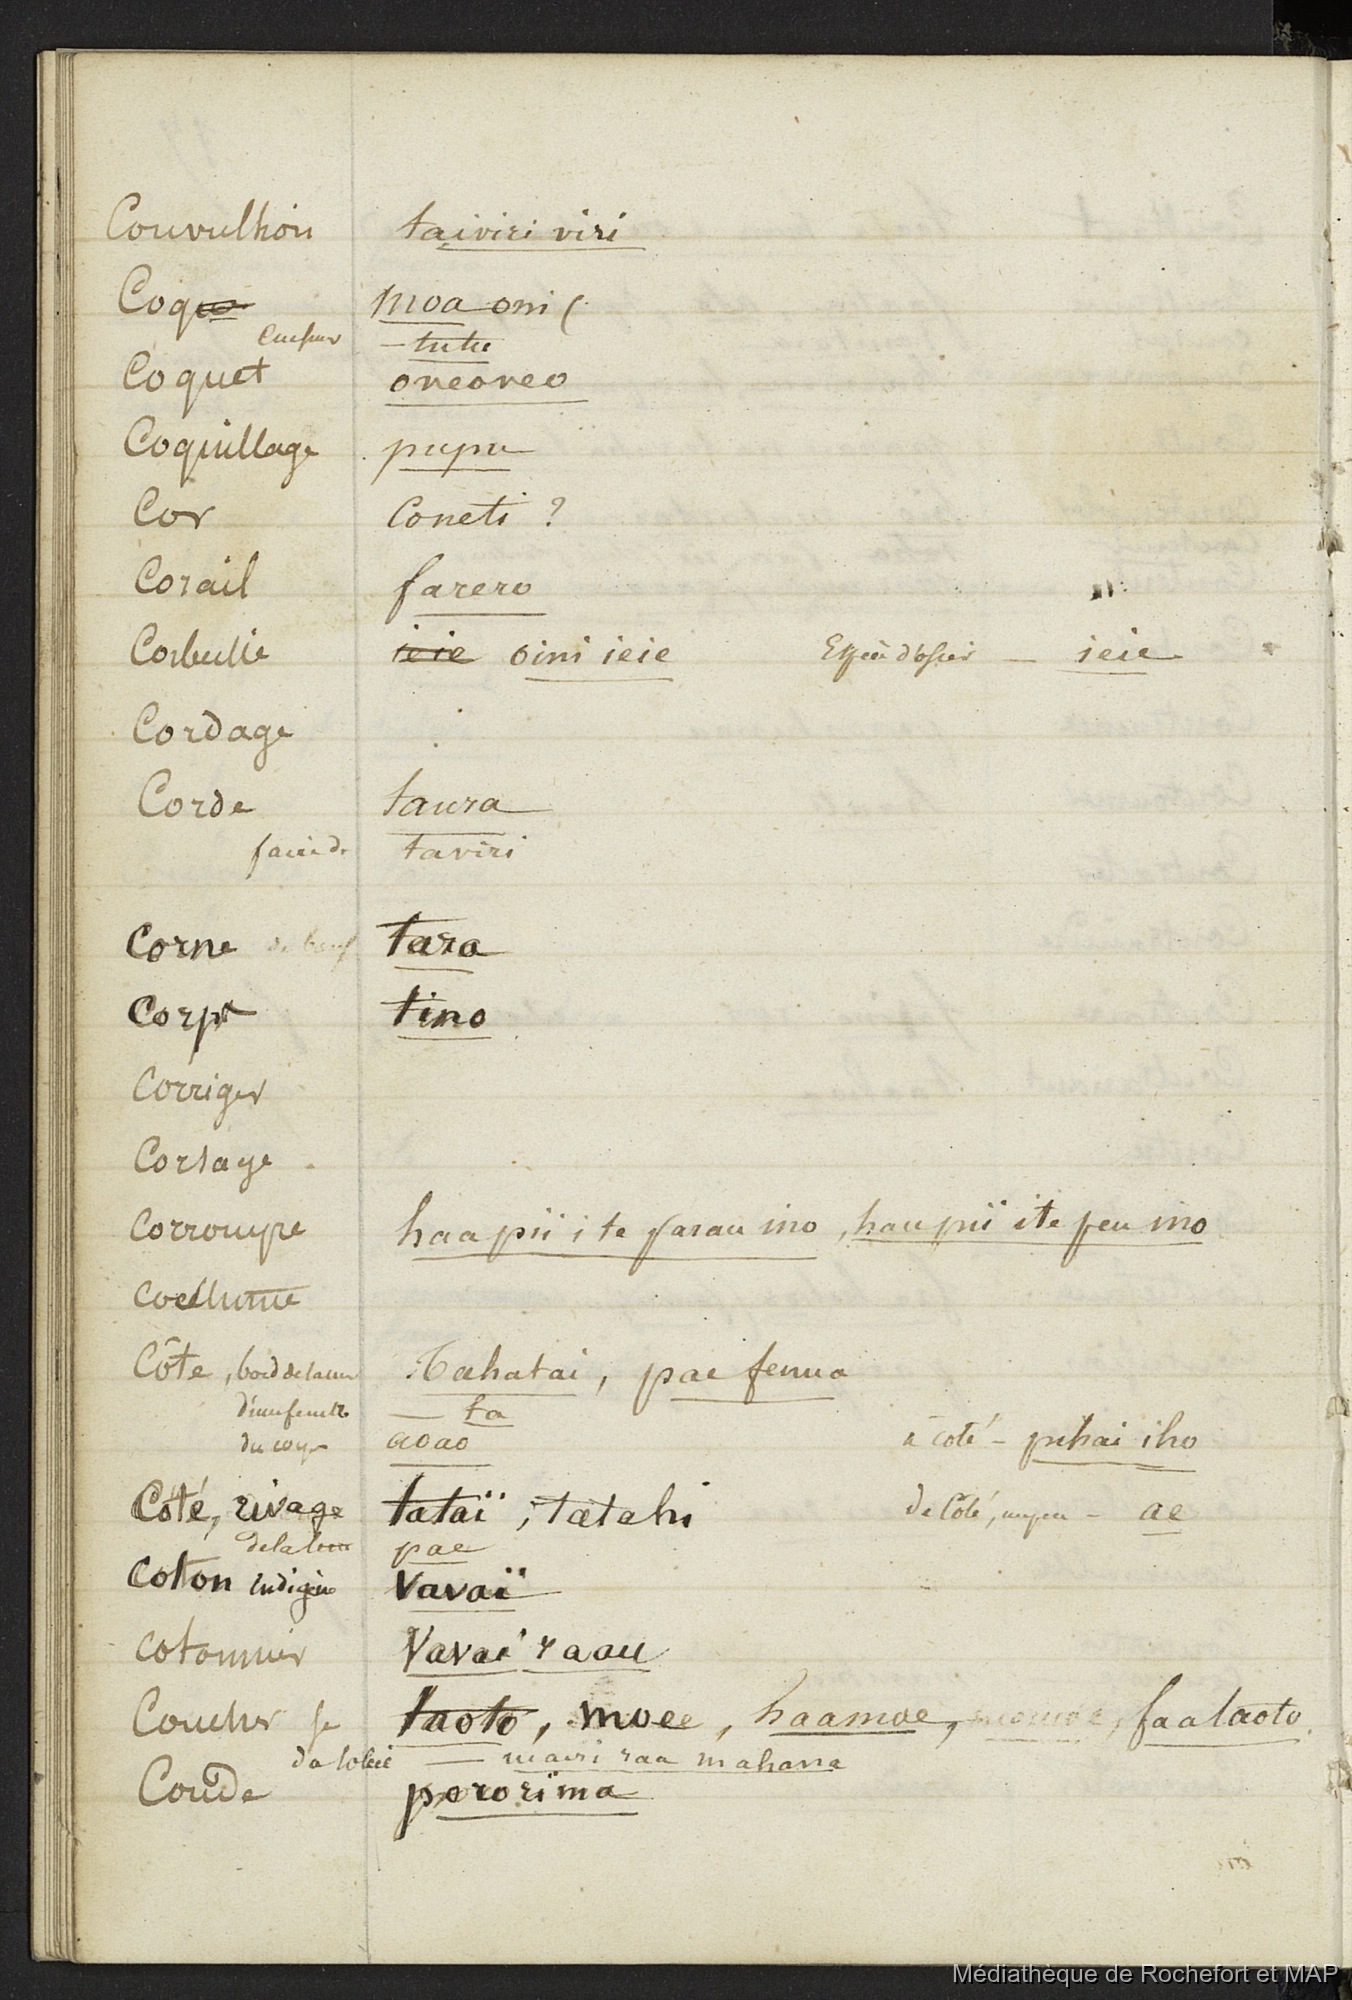 Convulsion taiviri viri
Coq moa oni (
— tutu
Coquet oneoneo
Coquillage pupu
Cor Coneti ?
Corail farero
Corbeille ieie oini ieie d'osier — ieie
Cordage
Corde taura
faire de taviri
Corne de boeuf tara
Corps tino
Corriger
Corsage
Corrompre haapii i te parau ino, haapii i te peu ino
Côte, bord de la mer Tahatai, pae fenua
— ta
du corps aoao à coté – pihai iho
Côté, rivage tataï, tatahi de Côté, un peu – ae
de la pae
Coton indigène Vavaï
Cotonnier Vavai raau
Coucher se taoto, moee, haamoe, faataoto
du soleil — mairi raa mahana
Coude pororima
Médiathèque de Rochefort et MAP